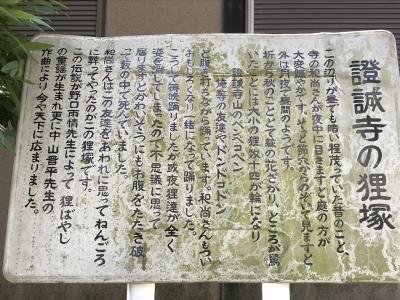 證誠寺の狸塚
この辺りが昼でも暗い程茂っていた昔のこと、
寺の和尚さんが夜中に目をさますと庭の方が
大変賑やかです。そっと節穴からのぞいて見ますと、
外は月夜で昼間のようです。
折から秋のこととて萩の花ざかり、ところが驚
いたことには大小の狸数十匹が輪になり
證誠寺山のペンペコペン
俺等の友達ァドンドコドン
と腹を打ちながら踊っています。和尚さんもつい
おもしろくなり一緒になって踊りました。
こうして幾晩踊りましたが或夜狸達が全く
姿を現してしまったので不思議に思って
居りますとかわいそうにもお腹をたたき破
って萩の中で死んでいました。
和尚さんはこの友達をあわれに思ってねんごろ
に葬ってやったのがこの狸塚です。
この伝説が野口雨情先生によって狸ばやし
の童謡が生まれ更に中山晋平先生の
作曲により今や天下に広まりました。